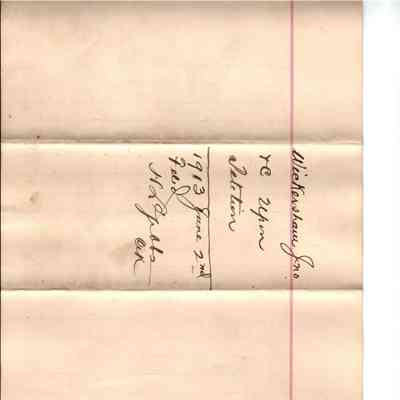 Wickersham Jno.
rc Upon
Petition
1913 June 2nd
Fil'd
CK